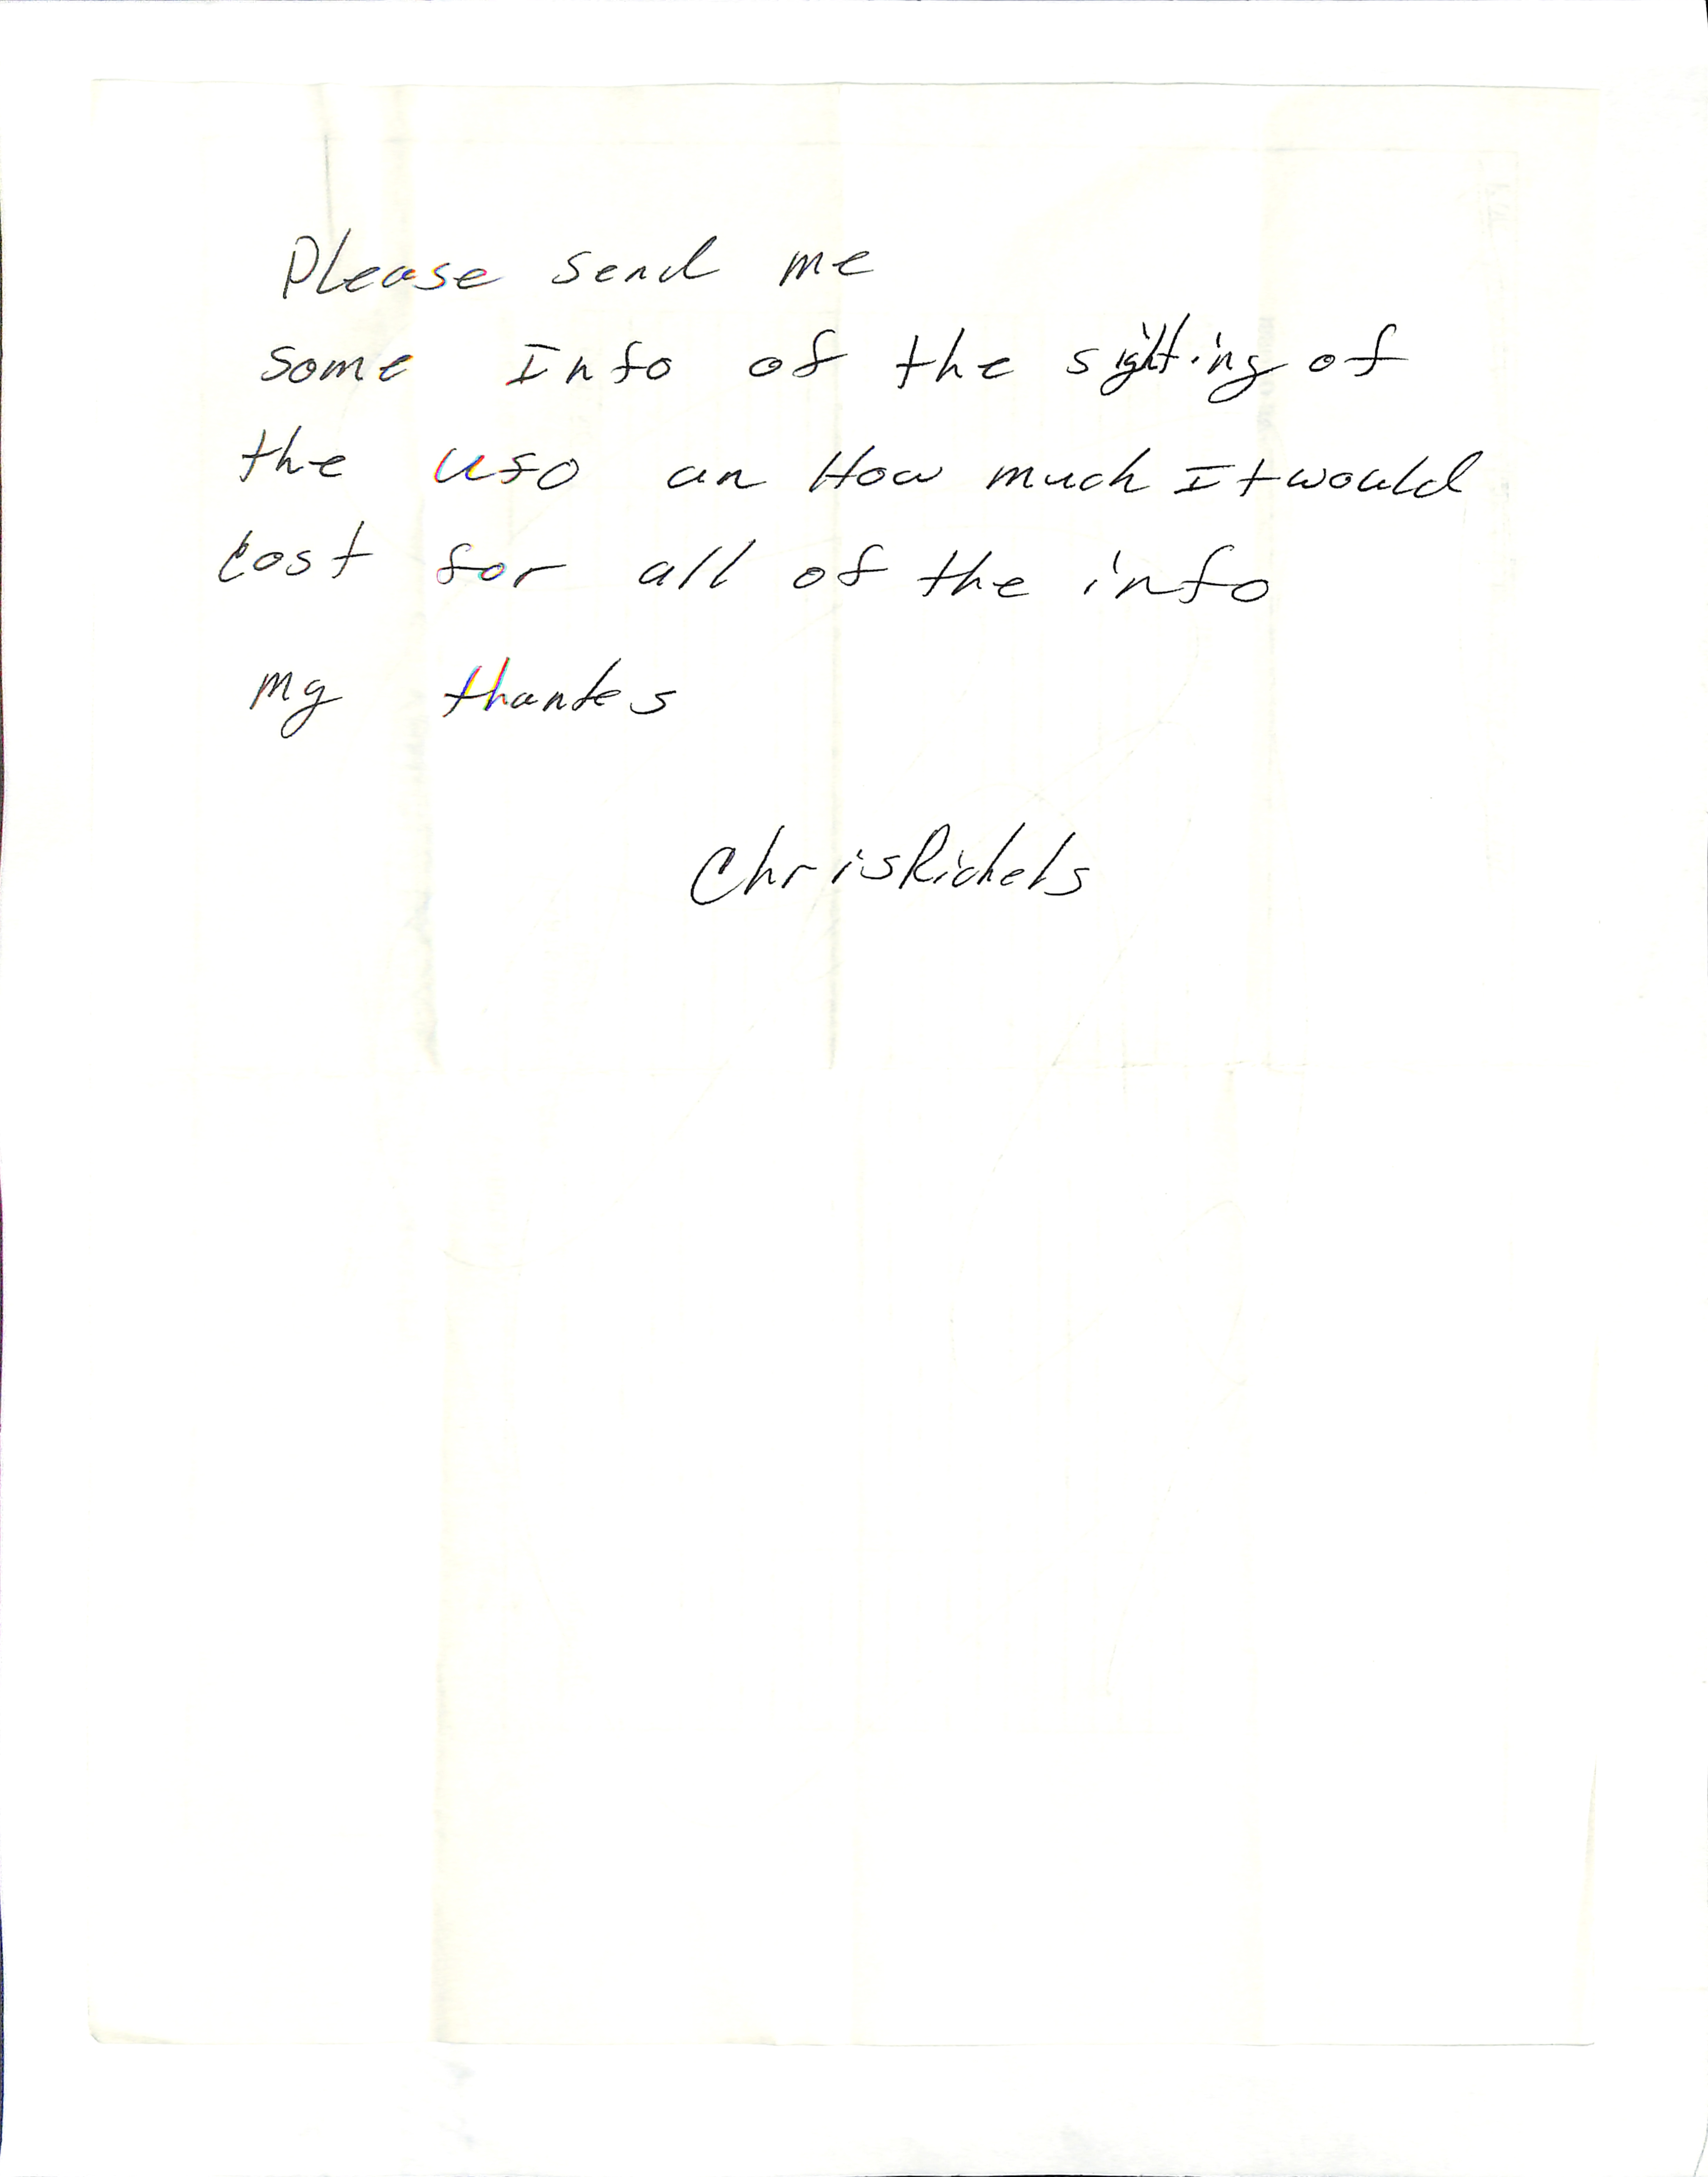 Please send me
some Info of the sighting of
the UFO an How much It would
cost for all of the info
my thanks
Chris Richels